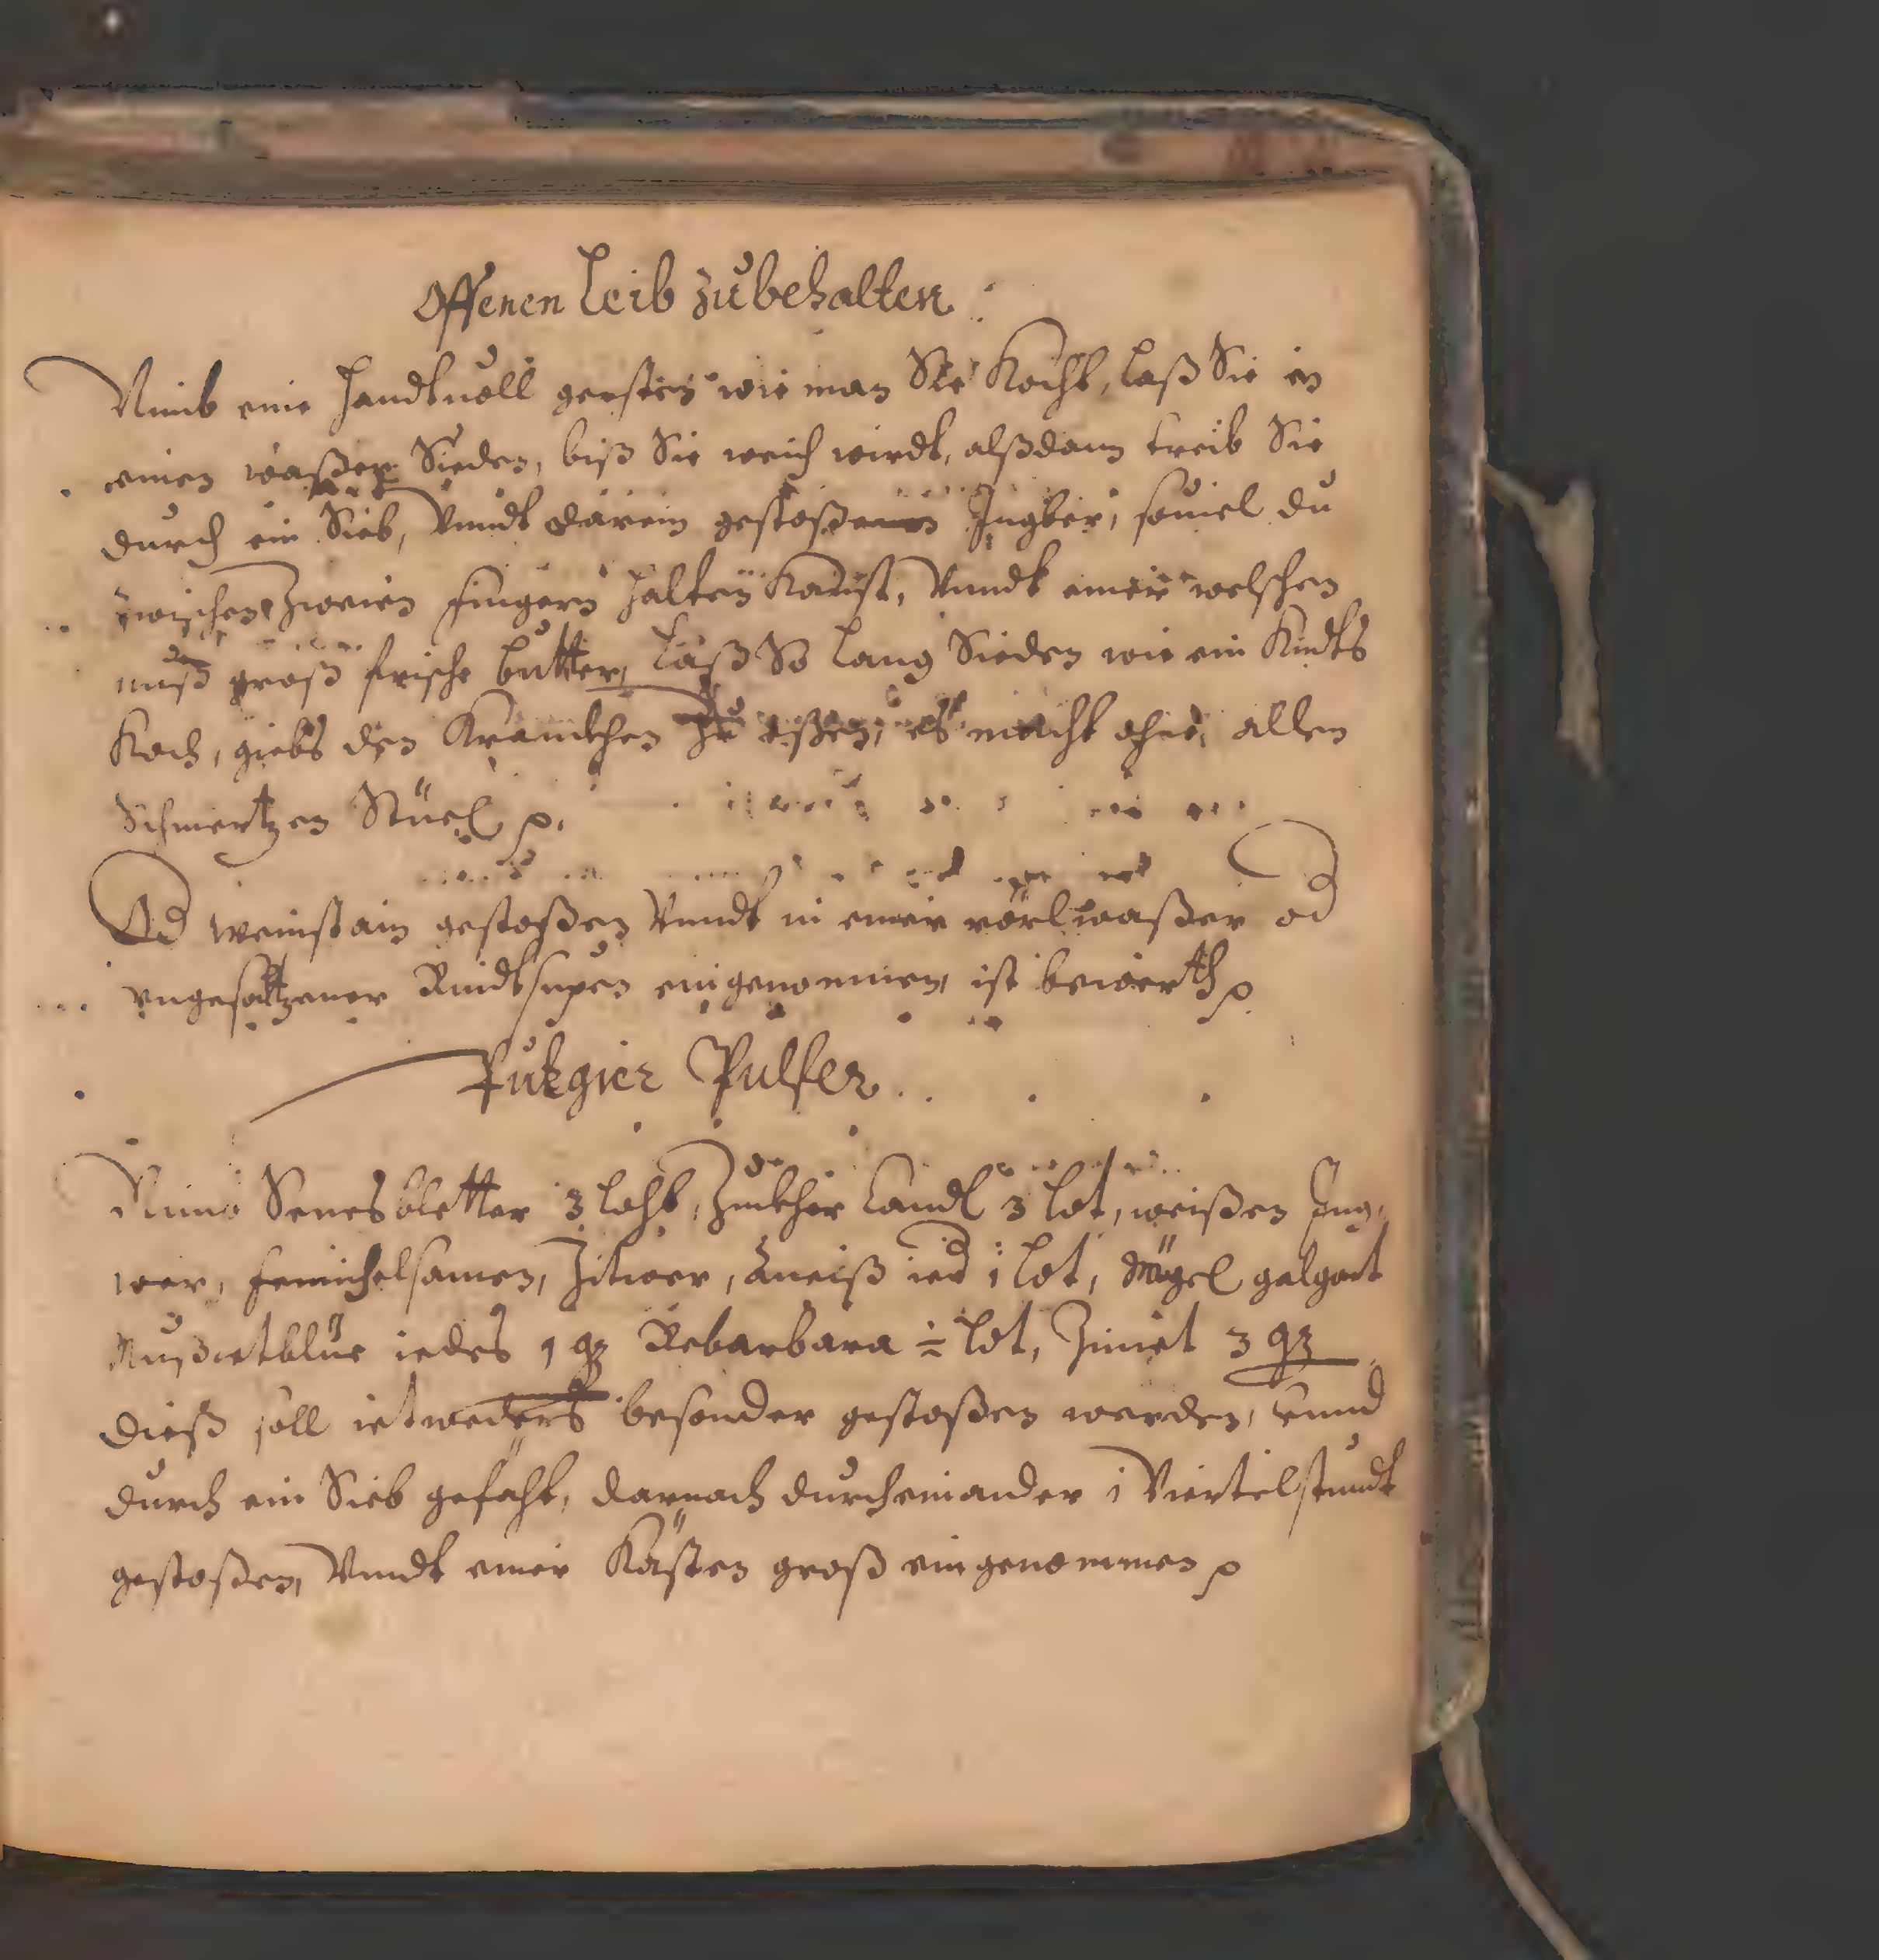 Offenen Leib zubehalten
Nimb eine handtuoll gersten wie man Sie Kocht, laß Sie in
einen waßer Sieden, biß Sie weich wirdt, alßdann treib Sie
durch ein Sieb, Vnndt darein gestoßenen Ingber, souiel du
zwischen Zweien fingern halten Kanst, Vnndt einer welschen
nuß groß frische butter, laß So lang Sieden wie ein Kindts
Koch, giebs den Kranckhen Zu eßen, es macht ohne allen
Schmertzen Stüel
Od weinstain gestoßen Vnndt in einer rörlwaßer od
vngesaltzener Rindtsupen eingenommen, ist bewerth
Purgier Pulfer
Nimb Senesbletter 3 loht, Zuckher Candl 3 lot, weißen Ing,
wer, fenichelsamen, Zitwer, Aneiß ied 1 lot, Nägel galgant
Mußcatblüe iedes 1 q Rebarbara ½ lot, Zimet 3 q
Dieß soll ietweders besonder gestoßen werden, vnnd
durch ein Sieb gefäht, darnach durcheinander 1 Viertelstundt
gestoßen, Vnndt einer Kästen groß eingenommen